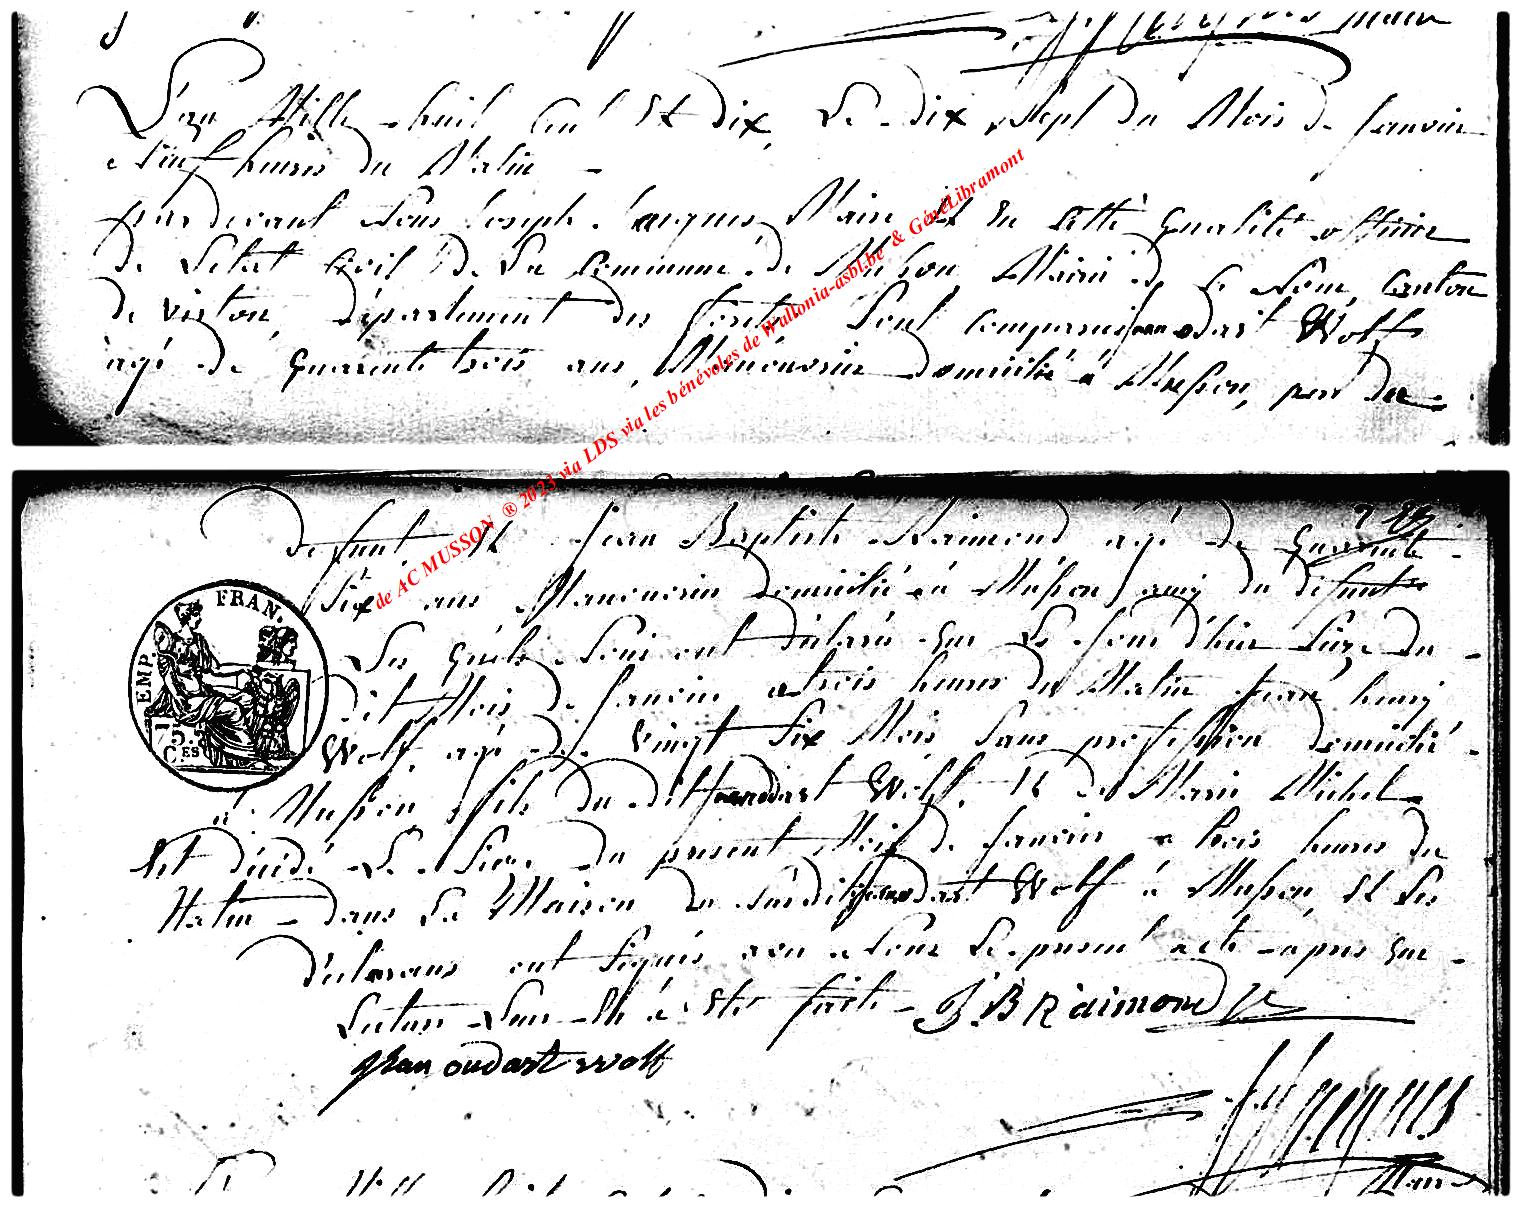 L'an Mille huit Cent Et dix, Le dix Sept du Mois de Janvier
a Neuf heures du Matin -
par devant Nous Joseph Jacques Maire Et En Cette qualité officier
de Letat Civil de La Commune de Musson Mairie de Ce Nom, Canton
de virton, département des forêts Sont Comparus jean odart Wolf
agé de quarente trois ans, Manœuvrier domicilié à Musson, per du
de AC MUSSON ® 2023 via LDS via les bénévoles de Wallonia-asbl.be & GénéLibramont
defunt Et Jean Baptiste Raimond agé de quarente -
Six ans Manœuvrier domicilié à Musson amy du defunt
Les quels Nous ont déclaré que Le Jour d'hier Sieze du -
dit Mois de Janvier a trois heures du Matin Jean henry
Wolf, agé de Vingt Six Mois Sans profession domicilié -
à Musson fils du dit jean odart Wolf, Et de Marie Michel
Est décédé Le Sieze du present Mois de Janvier a trois heures du
Matin - dans La Maison du Susdit jean odart Wolf à Musson, Et Les
déclarans ont Signés avec Nous Le present acte après que -
Lecture Leur En à Eté faite - J B Raimond
jean oudart wolf
J Jacques
Maire
EMP. FRAN.
75. CES